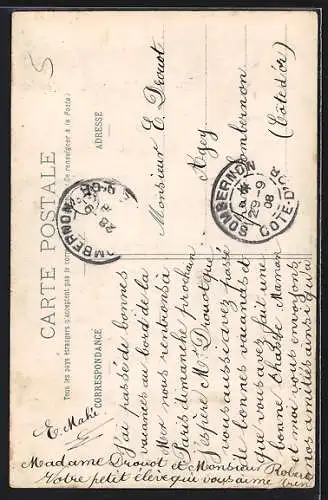 CARTE POSTALE
Tous les pays étrangers n'acceptent pas la
(Se renseigner à la Poste)
CORRESPONDANCE
ADRESSE
E. Mahé
J'ai passé de bonnes
vacances au bord de la
Mer nous rentrons à
Paris dimanche prochain
J'espère Mr Drouot que
vous aussi avez passé
de bonnes vacances et
que vous avez fait une
bonne chasse Maman
et moi vous envoyons
nos amitiés ainsi qu'à
Madame Drouot et Monsieur Robert
Votre petit élève qui vous aime bien
Monsieur E. Drouot
Agey
Sombernon
(Côte d'Or)
SOMBERNON
28
SOMBERNON
29-9
08
COTE-D'OR
5